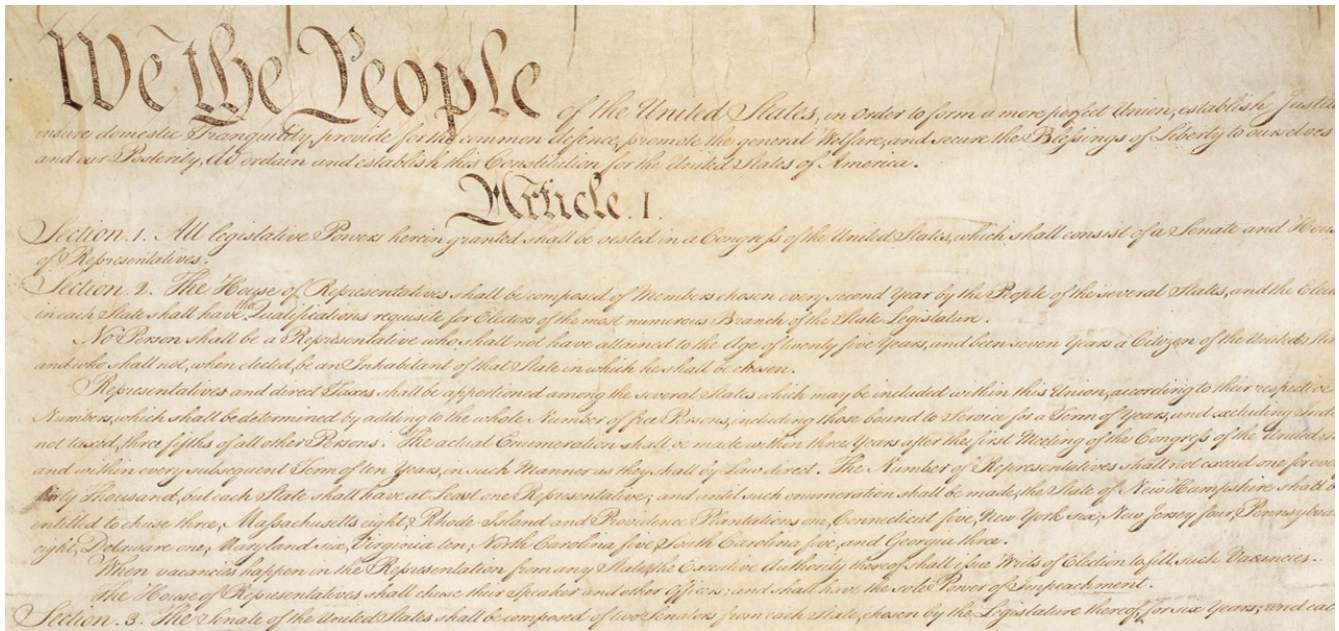 We the People of the United States, in Order to form a more perfect Union, establish Justice
insure domestic Tranquility, provide for the common defence, promote the general Welfare, and secure the Blessings of Liberty to ourselves
and our Posterity, do ordain and establish this Constitution for the United States of America.
Article. I.
Section. 1. All legislative Powers herein granted shall be vested in a Congress of the United States, which shall consist of a Senate and Hous
of Representatives.
Section. 2. The House of Representatives shall be composed of Members chosen every second Year by the People of the several States, and the Elec
in each State shall have the Qualifications requisite for Electors of the most numerous Branch of the State Legislature.
No Person shall be a Representative who shall not have attained to the Age of twenty five Years, and been seven Years a Citizen of the United Sta
and who shall not, when elected, be an Inhabitant of that State in which he shall be chosen.
Representatives and direct Taxes shall be apportioned among the several States which may be included within this Union, according to their respective
Numbers, which shall be determined by adding to the whole Number of free Persons, including those bound to Service for a Term of Years, and excluding Ind
not taxed, three fifths of all other Persons. The actual Enumeration shall be made within three Years after the first Meeting of the Congress of the United
and within every subsequent Term of ten Years, in such Manner as they shall by Law direct. The Number of Representatives shall not exceed one for eve
thirty Thousand, but each State shall have at Least one Representative; and until such enumeration shall be made, the State of New Hampshire shall b
entitled to chuse three, Massachusetts eight, Rhode-Island and Providence Plantations one, Connecticut five, New-York six, New Jersey four, Pennsylva
eight, Delaware one, Maryland six, Virginia ten, North Carolina five, South Carolina five, and Georgia three.
When vacancies happen in the Representation from any State, the Executive Authority thereof shall issue Writs of Election to fill such Vacancies.
The House of Representatives shall chuse their Speaker and other Officers; and shall have the sole Power of Impeachment.
Section. 3. The Senate of the United States shall be composed of two Senators from each State, chosen by the Legislature thereof, for six Years; and eac